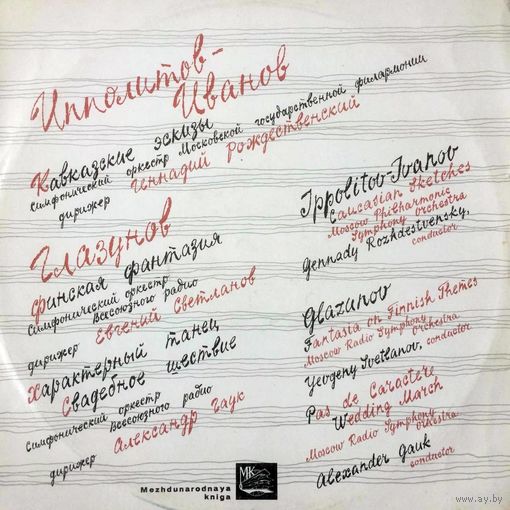 Ипполитов-
Иванов
Кавказские эскизы
Симфонический оркестр Московской государственной филармонии
дирижер Геннадий Рождественский
Глазунов
Финская фантазия
Симфонический оркестр
Всесоюзного радио
дирижер Евгений Светланов
Характерный танец
Свадебное шествие
Симфонический оркестр
Всесоюзного радио
дирижер Александр Гаук
Ippolitov-Ivanov
Caucasian Sketches
Moscow Philharmonic
Symphony Orchestra
Gennady Rozhdestvensky,
conductor
Glazunov
Fantasia on Finnish Themes
Moscow Radio Symphony
Orchestra
Yevgeny Svetlanov, conductor
Pas de Caractère
Wedding March
Moscow Radio Symphony
Orkestra
Alexander Gauk
conductor
MK
Mezhdunarodnaya
kniga
www.ay.by